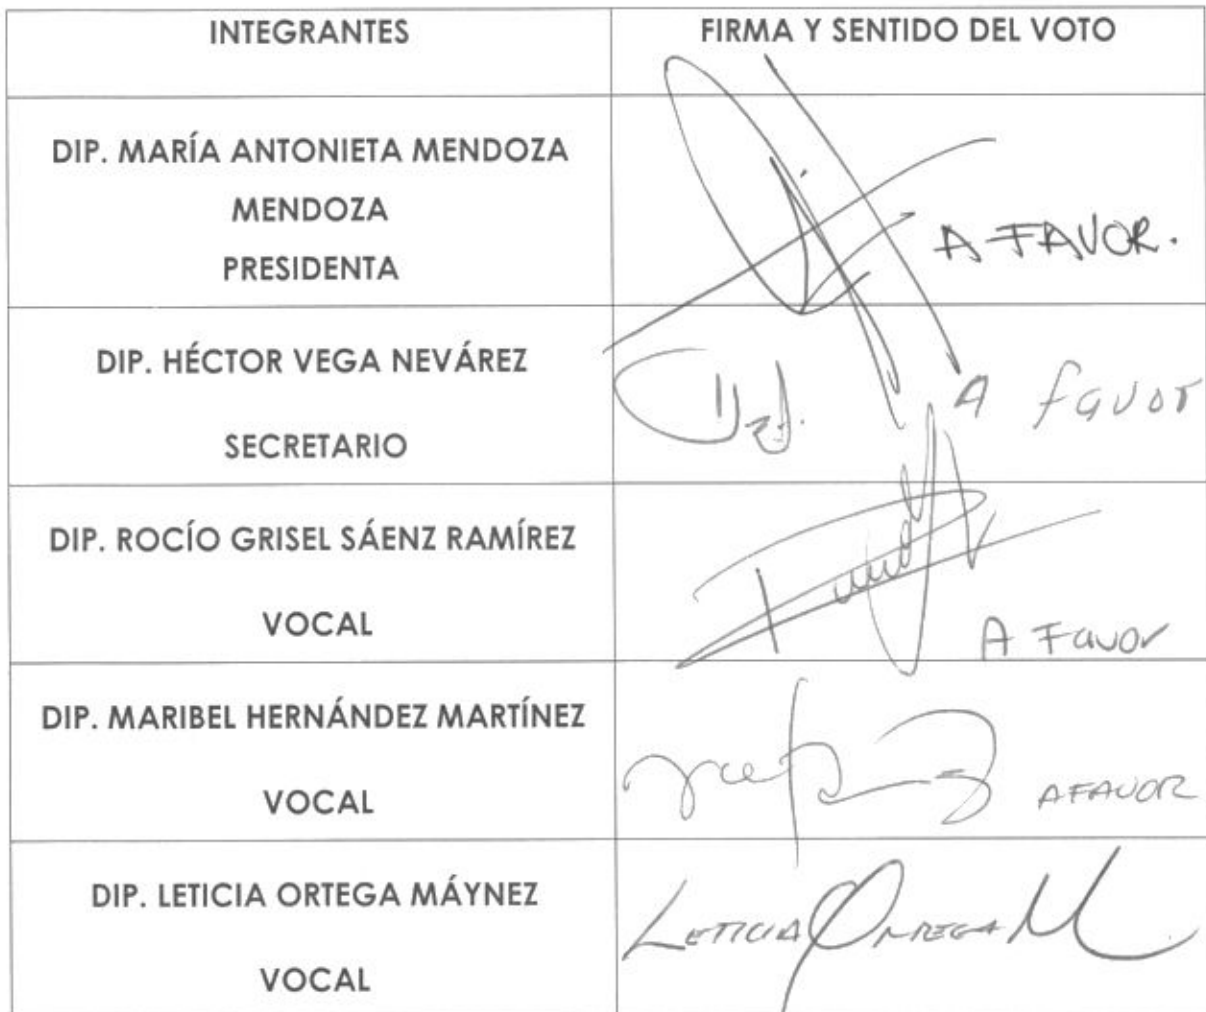 INTEGRANTES
FIRMA Y SENTIDO DEL VOTO
DIP. MARÍA ANTONIETA MENDOZA
MENDOZA
PRESIDENTA
A FAVOR.
DIP. HÉCTOR VEGA NEVÁREZ
SECRETARIO
A favor
DIP. ROCÍO GRISEL SÁENZ RAMÍREZ
VOCAL
A Favor
DIP. MARIBEL HERNÁNDEZ MARTÍNEZ
VOCAL
A FAVOR
DIP. LETICIA ORTEGA MÁYNEZ
VOCAL
LETICIA ORTEGA M.